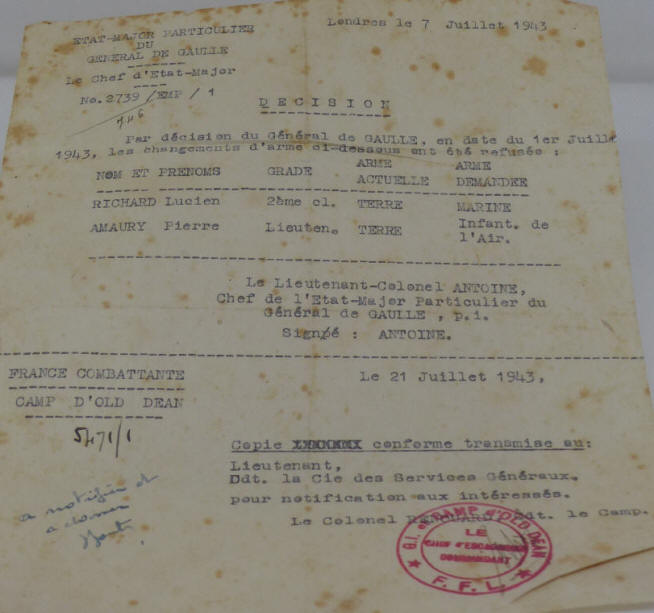 ETAT-MAJOR PARTICULIER
DU
GENERAL DE GAULLE
Le Chef d'Etat-Major
No.2739/EMP/1
Londres le 7 Juillet 1943
DECISION
Par décision du Général de GAULLE, en date du 1er Juill
1943, les changements d'arme ci-dessous ont été refusés :
NOM ET PRENOMS GRADE ARME ACTUELLE ARME DEMANDEE
RICHARD Lucien 2ème cl. TERRE MARINE
AMAURY Pierre Lieuten. TERRE Infant. de
l'Air.
Le Lieutenant-Colonel ANTOINE,
Chef de l'Etat-Major Particulier du
Général de GAULLE , p.i.
Signpé : ANTOINE.
FRANCE COMBATTANTE
CAMP D'OLD DEAN
5471/1
a notifier et
Le 21 Juillet 1943,
Copie conforme transmise au:
Lieutenant,
Ddt. la Cie des Services Généraux,
pour notification aux intéressés.
Le Colonel RENOUARD, Cdt. le Camp.
CAMP d'OLD DEAN
LE
CHEF d'ESCADRONS
COMMANDANT
F.F.L.